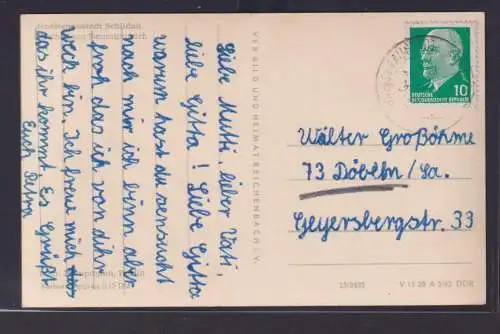 Liebe Mutti, lieber Vati,
liebe Gitta! Liebe Gitta
warum hast du Sensucht
nach mir ich binn aber
froh das ich von dihr
weck bin. Ich freue mich
das ihr kommt Es Grüßt
Euch Petra
VERBILD UND HEIMAT REICHENBACH I. V.
10
DEUTSCHE
DEMOKRATISCHE REPUBLIK
Walter Großöhme
73 Döbeln/Sa.
Geyersbergstr. 33
V 11 28 A 5/62 DDR